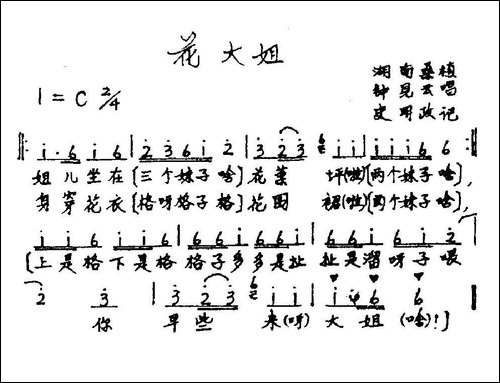 花大姐
湖南桑植
1=C 2/4
钟昆云唱
史明政记
i·6 i 6 | 2 3 6 i 2 | 3 2 3 | i i | i i i 6 6
姐儿坐在〔三个妹子啥〕花菜 坪(啦)〔两个妹子啥〕,
身穿花衣〔格呀格子格〕花围 裙(啦)〔两个妹子啥〕,
i i 6 i i 6 | 6 6 i i i 6 | i i 6 i 2
〔上是格下是格 格子多多是扯 扯是溜呀子喂
2 3 | 3 2 3 | i i | i 6 6
你 早些 来(呀) 大姐(啥)!〕